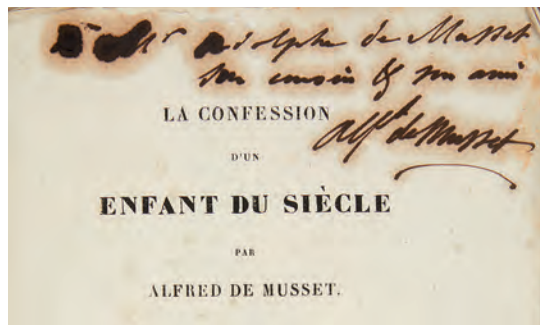 à Mr adolphe de Musset
son cousin & son ami
Alf. de Musset
LA CONFESSION
D'UN
ENFANT DU SIÈCLE
PAR
ALFRED DE MUSSET.